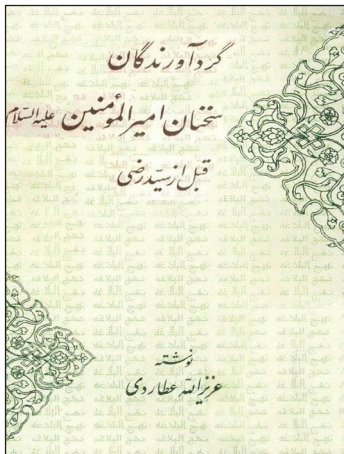 گردآورندگان
سخنان امیرالمؤمنین علیه‌السلام
قبل از سیّد رضی
نوشته
عزیزالله عطاردی
نهج البلاغه